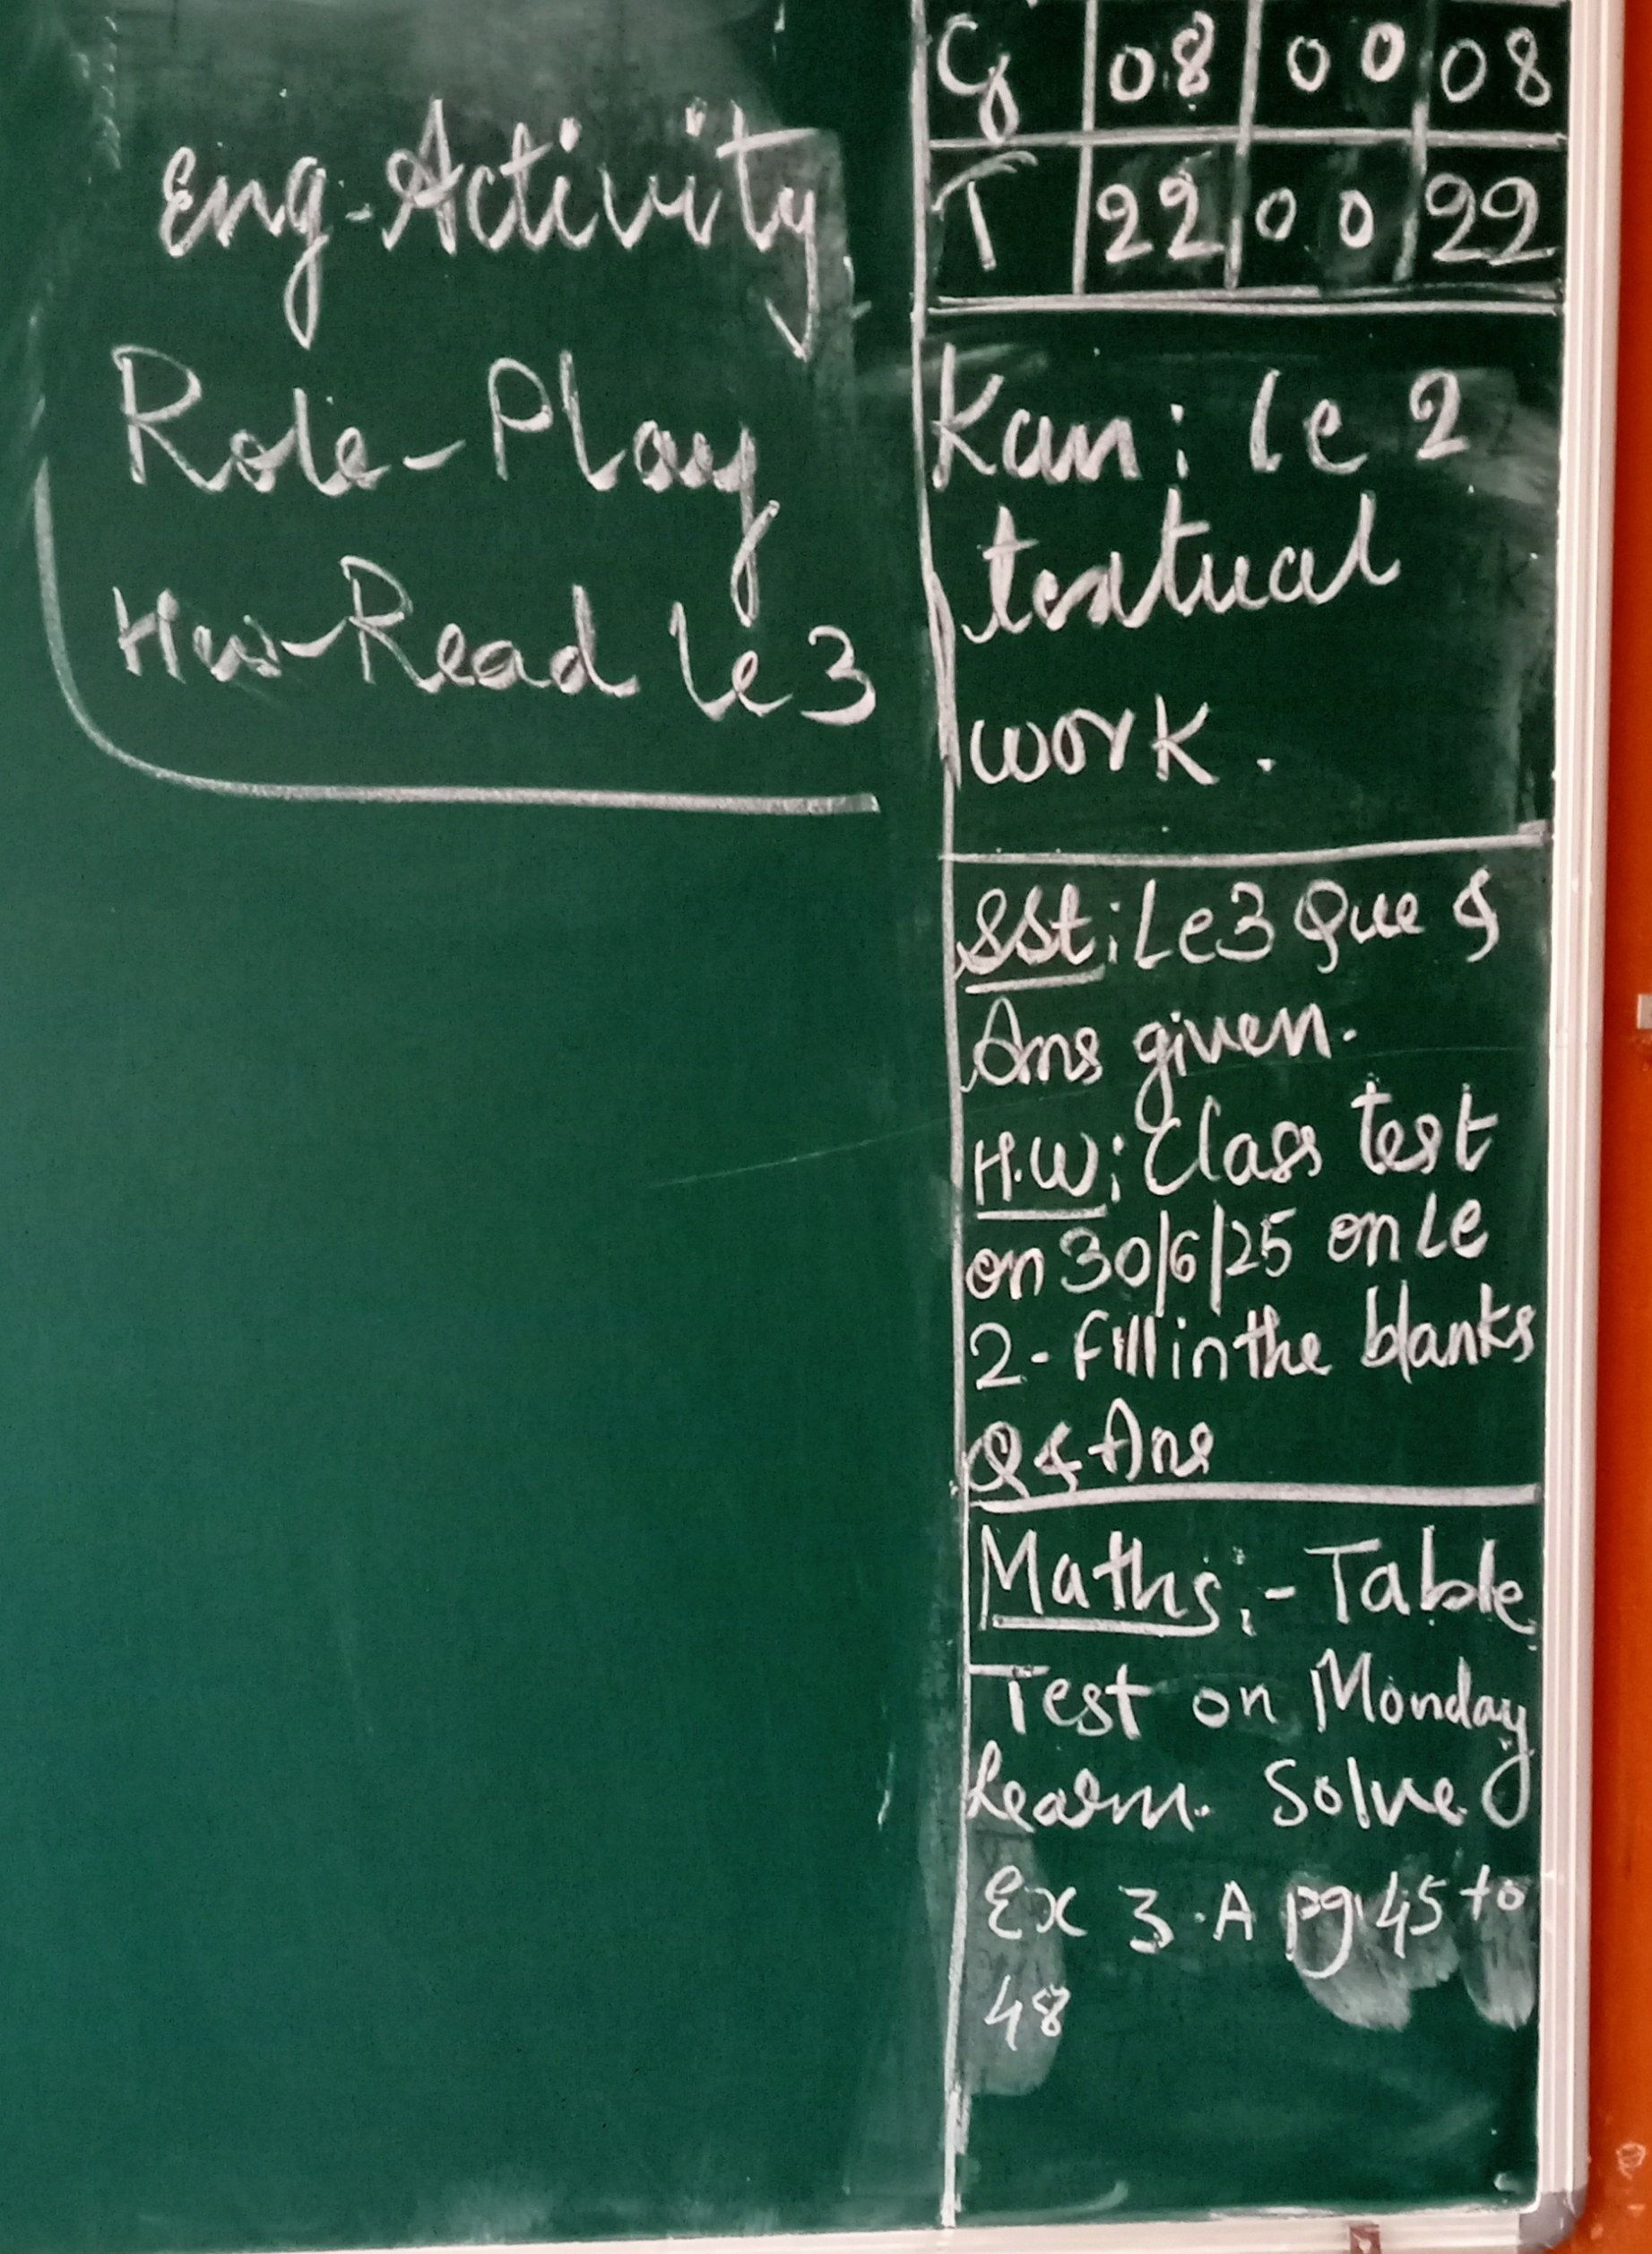 Eng-Activity
Role-Play
Hw-Read le 3
G 08 00 08
T 22 00 22
Kan: le 2
textual
work.
SSt: Le 3 Que &
Ans given.
H.W: Class test
on 30/6/25 on Le
2- Fill in the blanks
Q & Ans
Maths:- Table
Test on Monday
Learn. Solve
Ex 3.A pg. 45 to
48